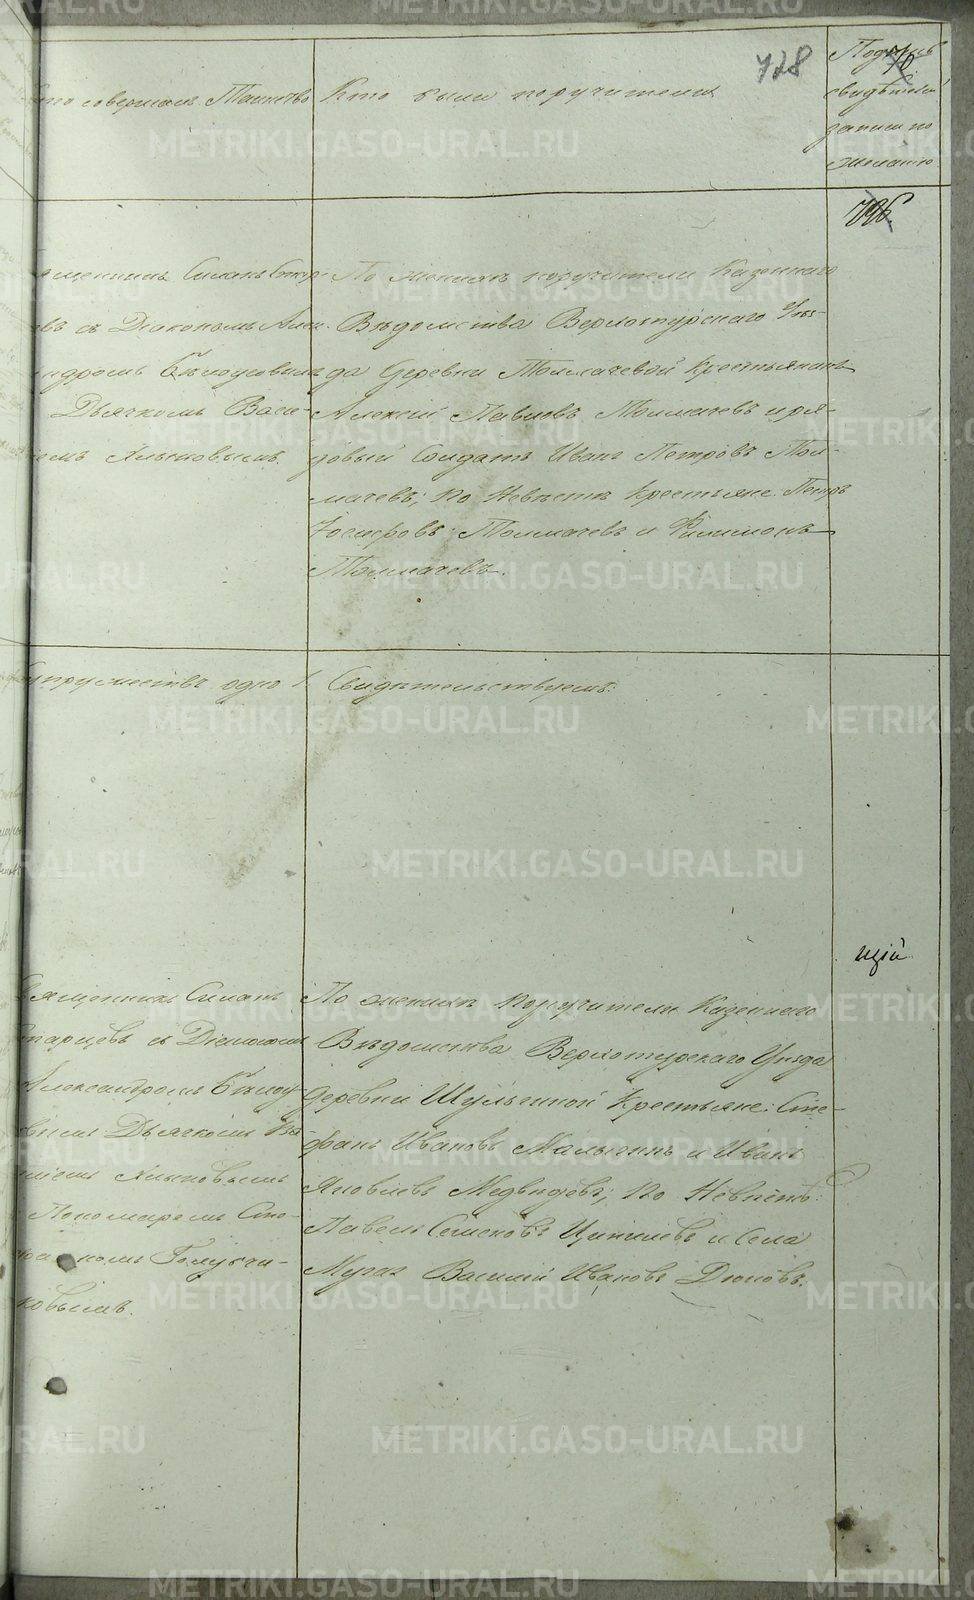 728
70
Кто совершалъ Таинство
Кто были поручители
Подпись
свидѣтелей
записи по
желанію
796.
Священникъ Симанъ Стар-
цовъ съ Діакономъ Алек-
сандромъ Бѣлоусовымъ
Дьячкомъ Васи-
ліемъ Хлыновымъ.
По женихѣ поручители Казеннаго
Вѣдомства Верхотурскаго Уѣз-
да Деревни Толмачевой Крестьянинъ
Алексій Павловъ Толмачевъ и ря-
довый Солдатъ Иванъ Петровъ Тол-
мачевъ; по Невѣстѣ Крестьяне Петръ
Толмачевъ и Филимонъ
Толмачевъ.
супружествъ одно 1.
Свидѣтельствуемъ.
щій
Священникъ Симанъ
Старцевъ съ Діакономъ
Александромъ Бѣлоу-
совымъ Дьячкомъ Ва-
силіемъ Хлыновымъ
Пономаремъ Сте-
Голубчи-
ковымъ.
По женихѣ Поручители Казеннаго
Вѣдомства Верхотурскаго Уѣзда
Деревни Шульгиной Крестьяне: Сте-
фанъ Ивановъ Малыгинъ и Иванъ
Яковлевъ Медвѣдевъ; по Невѣстѣ:
Павелъ Семеновъ Ципилевъ и Села
Мугая Василій Ивановъ Дюковъ.
METRIKI.GASO-URAL.RU